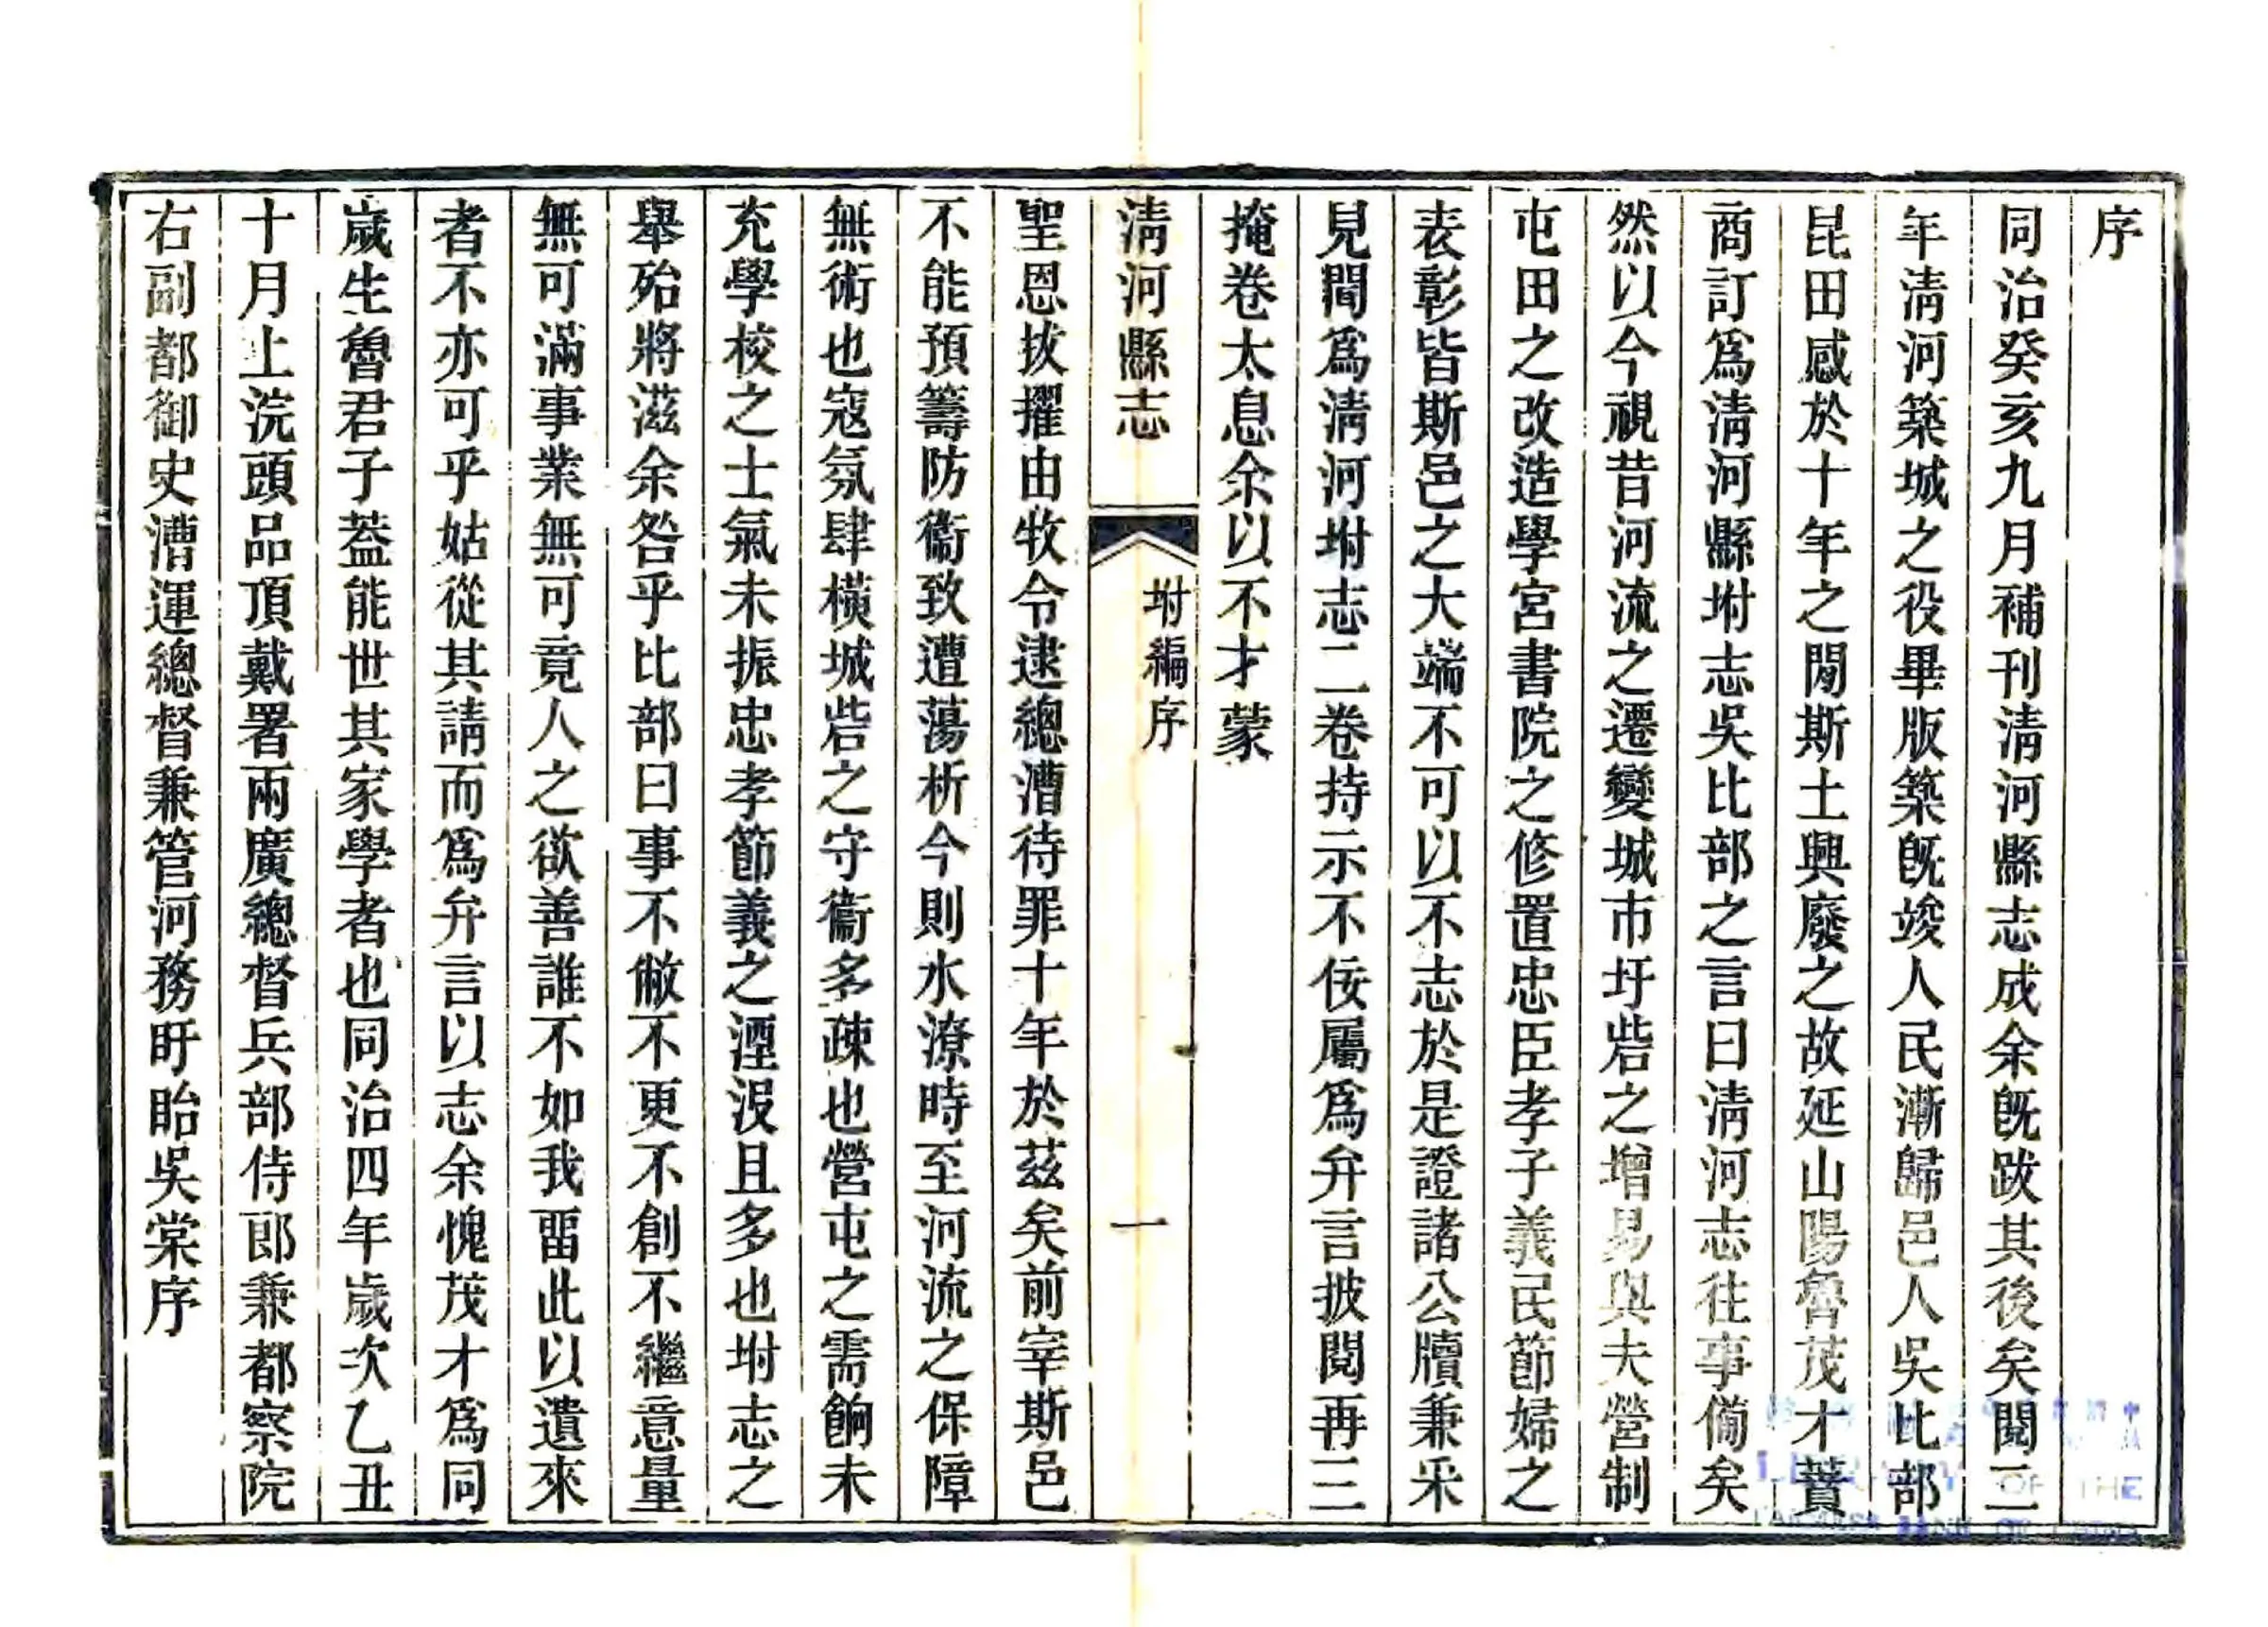 序
同治癸亥九月補刊淸河縣志成余旣跋其後矣閱二
年淸河築城之役畢版築旣竣人民漸歸邑人吳比部
昆田感於十年之閒斯土興廢之故延山陽魯茂才蕡
商訂爲淸河縣坿志吳比部之言曰淸河志往事僃矣
然以今視昔河流之遷變城市圩砦之增易與夫營制
屯田之改造學宮書院之修置忠臣孝子義民節婦之
表彰皆斯邑之大端不可以不志於是證諸公牘兼采
見聞爲淸河坿志二卷持示不佞屬爲弁言披閱再三
掩卷太息余以不才蒙
淸河縣志
坿編序
一
聖恩拔擢由牧令逮總漕待罪十年於茲矣前宰斯邑
不能預籌防衞致遭蕩析今則水潦時至河流之保障
無術也寇氛肆橫城砦之守衞多疎也營屯之需餉未
充學校之士氣未振忠孝節義之湮沒且多也坿志之
舉殆將滋余咎乎比部曰事不敝不更不創不繼意量
無可滿事業無可竟人之欲善誰不如我畱此以遺來
者不亦可乎姑從其請而爲弁言以志余愧茂才爲同
歲生魯君子葢能世其家學者也同治四年歲次乙丑
十月上浣頭品頂戴署兩廣總督兵部侍郎兼都察院
右副都御史漕運總督兼管河務盱眙吳棠序
OF THE